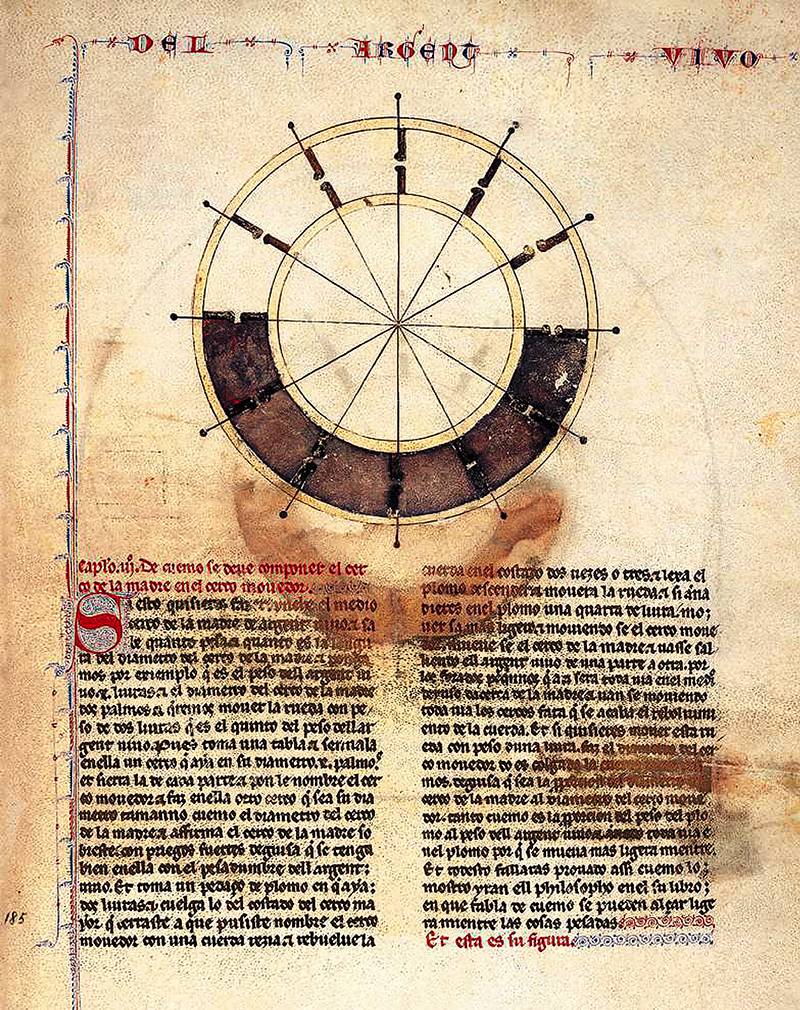 DEL ARGENT VIVO
Caplo. iij. De cuemo se deue componer el cer
co de la madre en el cerco mouedor.
Si esto quisieres fazer
cerco de la madre de argent uiuo & sa
be quanto pesa & quanto es la
ra del diametro del cerco de la madre &
mos por exemplo q̃ es el peso dell argent ui
uo libras & el diametro del cerco de la madre
palmos & q̃remos mouer la rueda con pe
so de dos liuras q̃ es el quinto del peso dell ar
gent uiuo. Pues toma una tabla & sennala
en ella un cerco q̃ aya en su diametro palmos
et sierra la de cada parte & pon le nombre el cer
co mouedor & faz en ella otro cerco q̃ sea su dia
metro tamanno cuemo el diametro del cerco
de la madre & affirma el cerco de la madre so
breste con priegos fuertes deguisa q̃ se tenga
bien en ella con el pesadumbre dell argent
uiuo. Et toma un pedaço de plomo en q̃ aya
dos liuras & cuelga lo del costado del cerco ma
yor q̃ cortaste a que pusiste nombre el cerco
mouedor con una cuerda rezia & rebuelue la
cuerda en el costado dos uezes o tres & lexa el
plomo descender & mouera la rueda & si ana
dieres en el plomo una quarta de liura mo
uer sa mas ligera & mouiendo se el cerco moue
dor mueue se el cerco de la madre & uasse sal
liendo ell argent uiuo de una parte a otra por
los forados pequennos q̃ a & sera toda uia en el medio
cerco de la madre & uan se mouiendo
toda uia los cercos fata q̃ se acaba el reboluimi
ento de la cuerda. Et si quisieres mouer esta ru
eda con peso duna liura faz el diametro del cer
co mouedor
mos. deguisa q̃ sea la proporcion del diametro del
cerco de la madre al diametro del cerco moue
dor tanto cuemo es la proporcion del peso del plo
mo al peso dell argent uiuo & toda uia e
nel plomo por q̃ se mueua mas ligera mientre.
Et todesto fallaras prouado assi cuemo lo
mostro yran ell philosopho en el su libro
en que fabla de cuemo se pueden alçar lige
ra mientre las cosas pesadas.
Et esta es su figura.
185